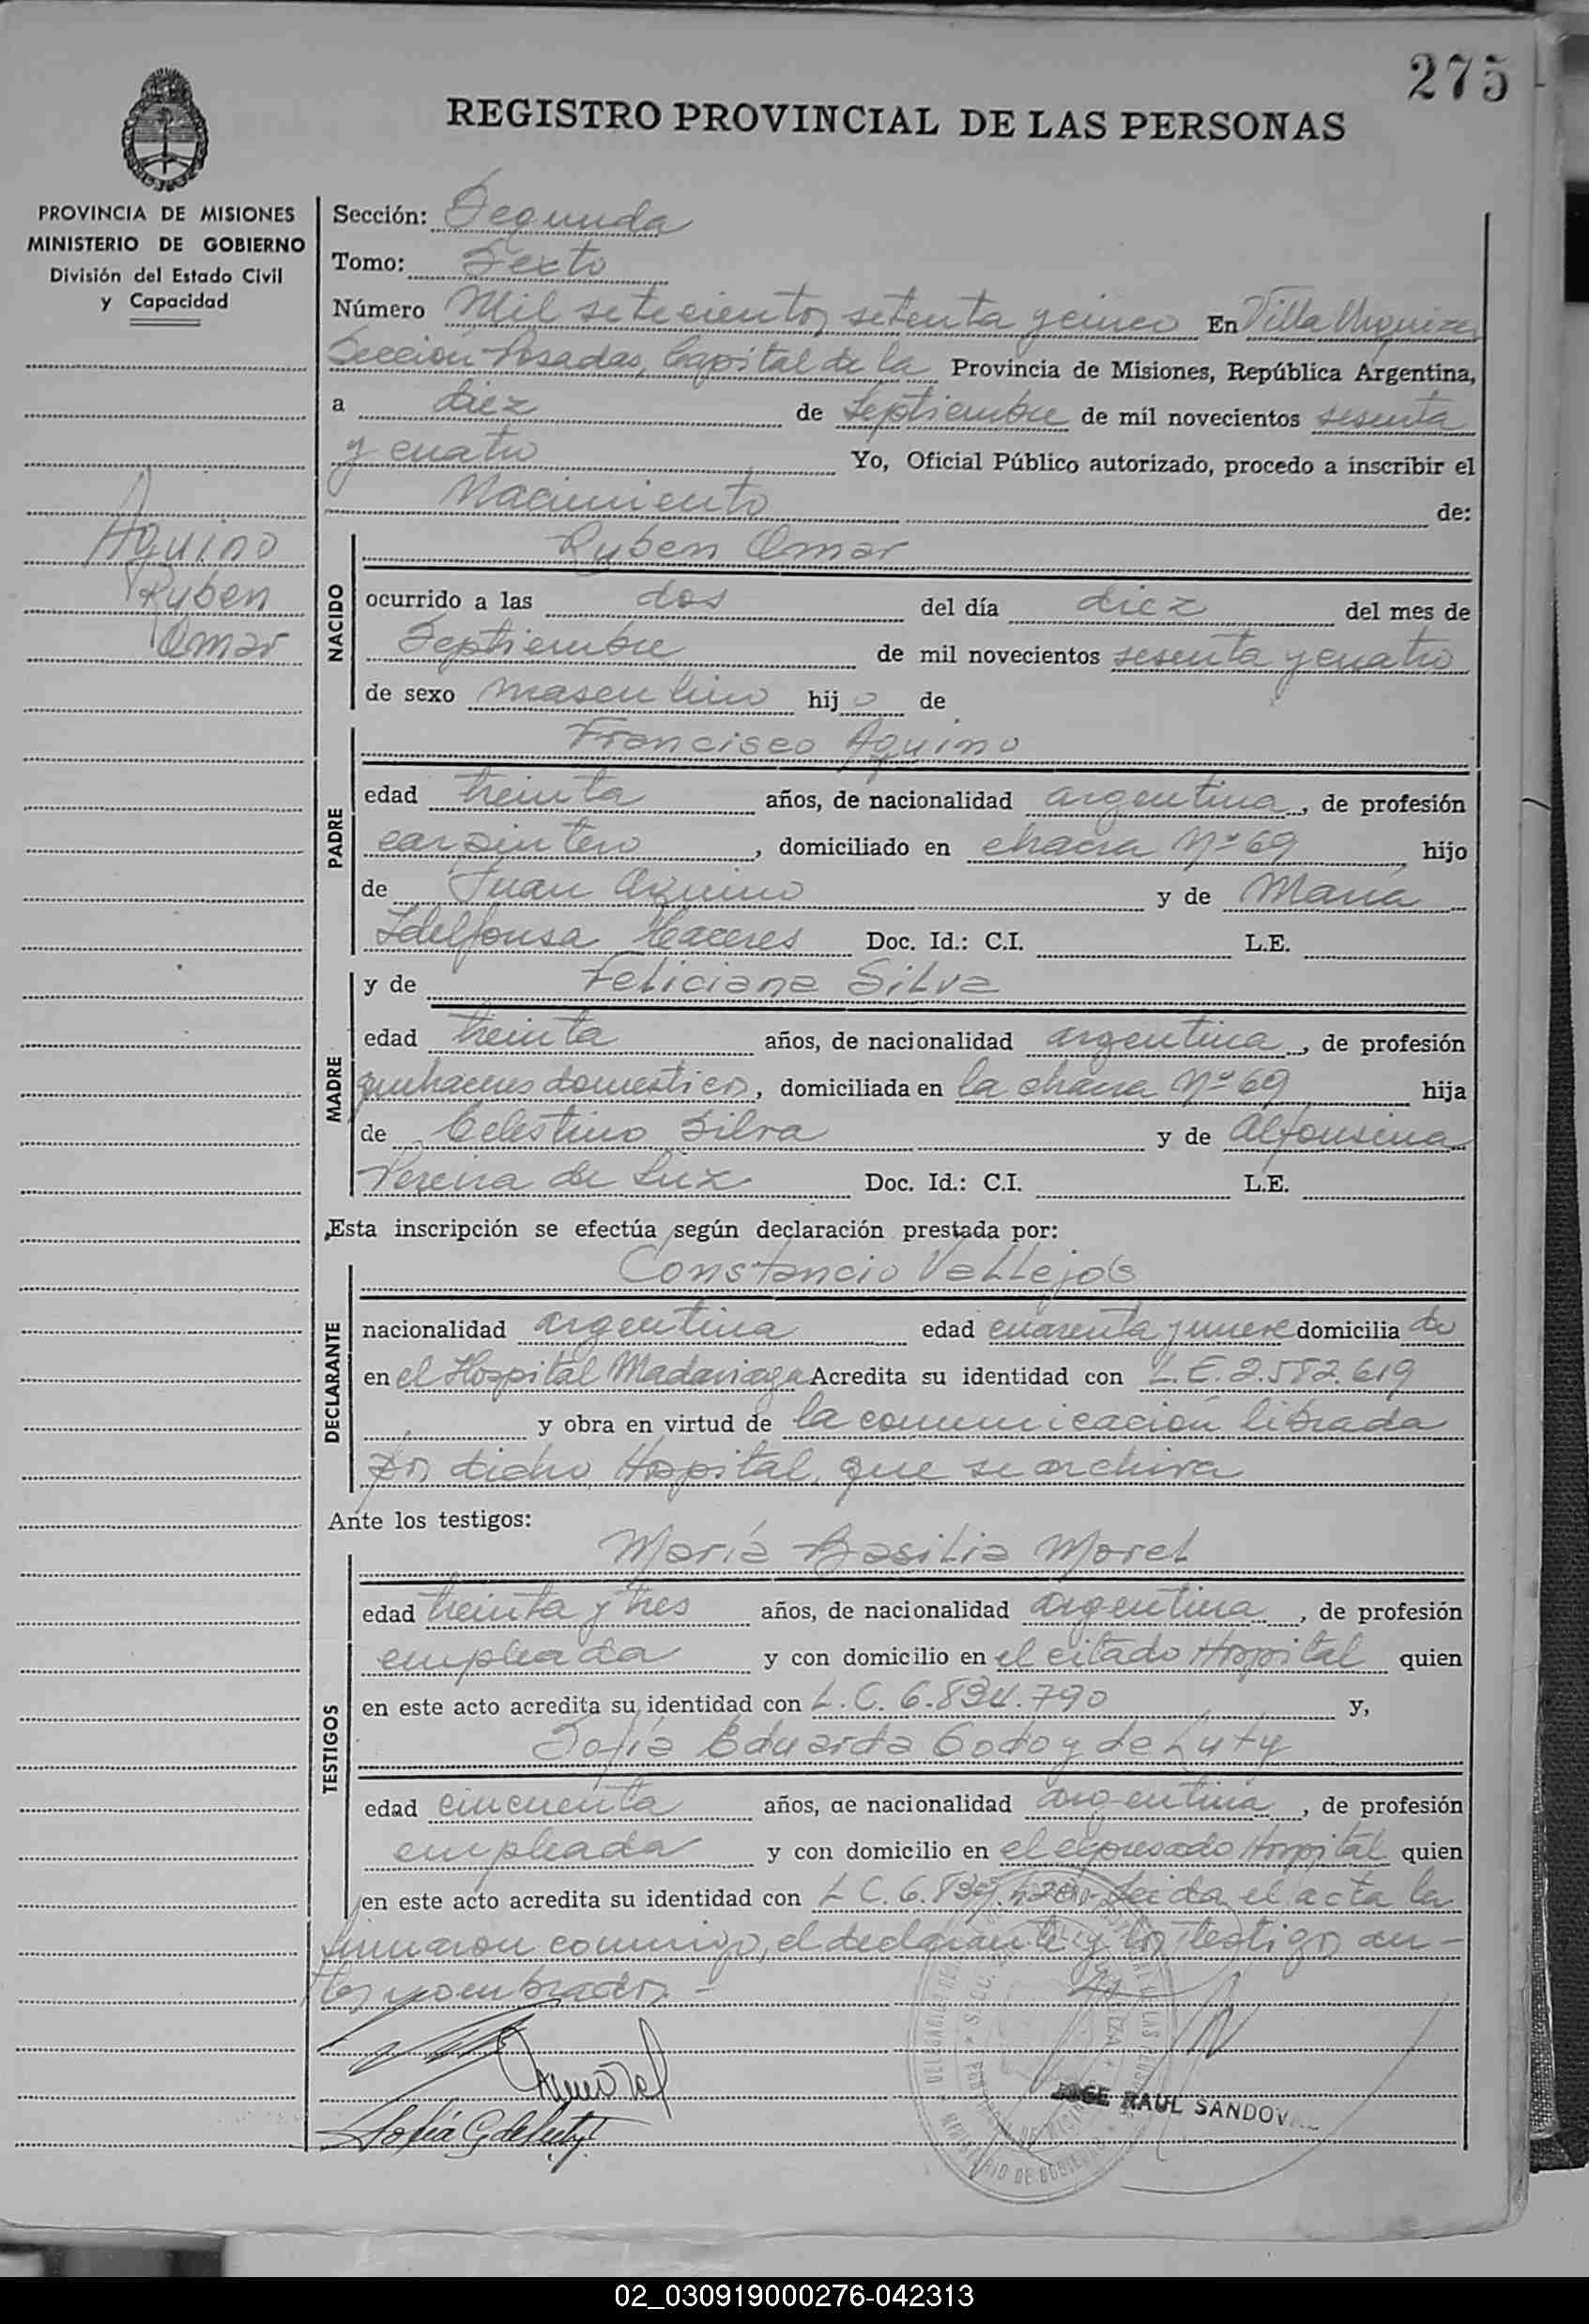 275
REGISTRO PROVINCIAL DE LAS PERSONAS
PROVINCIA DE MISIONES
MINISTERIO DE GOBIERNO
División del Estado Civil
y Capacidad
Aquino
Ruben
Omar
Sección: Segunda
Tomo: Sexto
Número Mil setecientos setenta y cinco En Villa Urquiza
Sección Posadas, Capital de la Provincia de Misiones, República Argentina,
a diez de Septiembre de mil novecientos sesenta
y cuatro Yo, Oficial Público autorizado, procedo a inscribir el
Nacimiento de:
NACIDO
Ruben Omar
ocurrido a las dos del día diez del mes de
Septiembre de mil novecientos sesenta y cuatro
de sexo masculino hijo de
PADRE
Francisco Aquino
edad treinta años, de nacionalidad argentina, de profesión
carpintero, domiciliado en chacra Nº 69 hijo
de Juan Aquino y de María
Ildelfonsa Caceres Doc. Id.: C.I. L.E.
MADRE
y de Feliciana Silva
edad treinta años, de nacionalidad argentina, de profesión
quehaceres domesticos, domiciliada en la chacra Nº 69 hija
de Celestino Silva y de Alfonsina
Pereira de Luz Doc. Id.: C.I. L.E.
Esta inscripción se efectúa según declaración prestada por:
DECLARANTE
Constancio Vallejos
nacionalidad argentina edad cuarenta y nueve domicilia do
en el Hospital Madariaga Acredita su identidad con L.E. 2.582.619
y obra en virtud de la comunicación librada
por dicho Hospital, que se archiva
Ante los testigos:
TESTIGOS
María Basilia Morel
edad treinta y tres años, de nacionalidad argentina, de profesión
empleada y con domicilio en el citado Hospital quien
en este acto acredita su identidad con L.C. 6.834.790 y,
Sofía Eduarda Godoy de Luty
edad cincuenta años, de nacionalidad argentina, de profesión
empleada y con domicilio en el expresado Hospital quien
en este acto acredita su identidad con L C. Leida el acta la
firmaron conmigo, el declarante y los testigos an-
tes nombrados.-
Sofía G de Luty
JOSE RAUL SANDOV
02_030919000276-042313